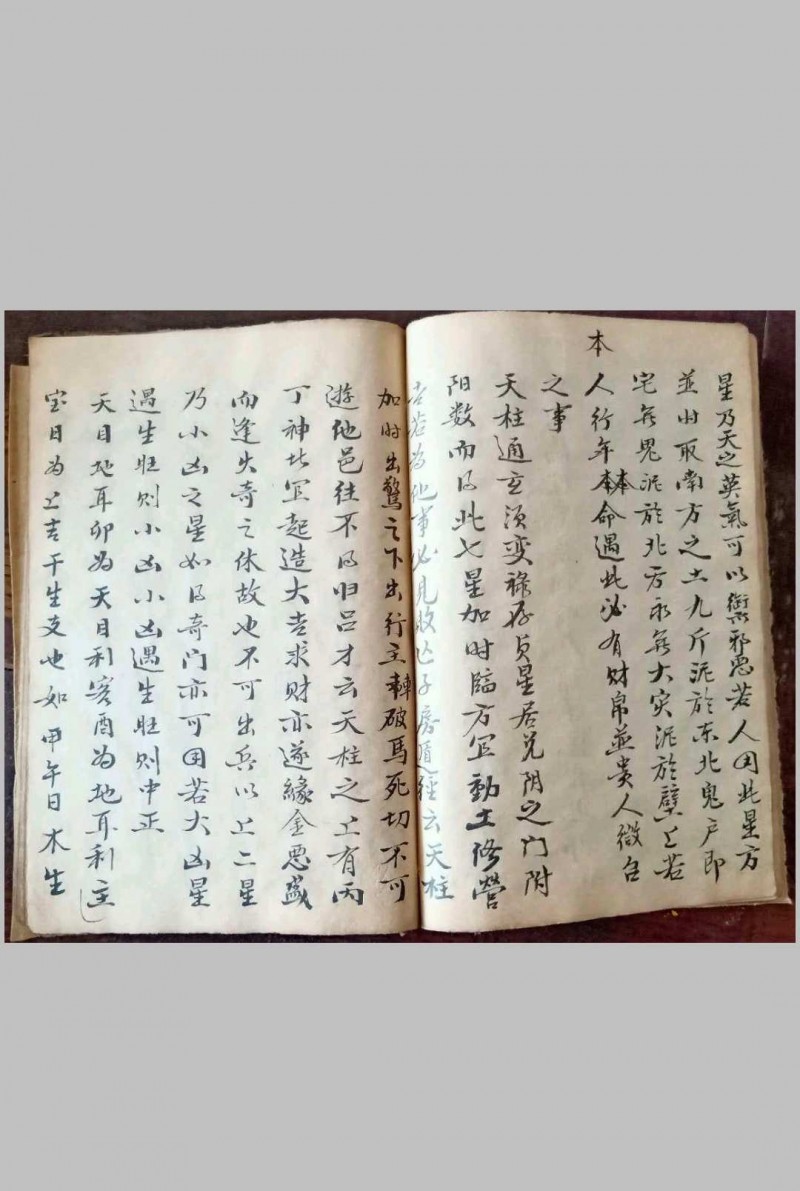 星乃天之英氣可以衛邪惡若人因此星方
並山取南方之土九斤泥於东北鬼户即
宅無鬼泥於北方永無大突泥於壁上若
本
人行年本命遇此必有财帛並贵人徵召
之事
天柱通玄须变祿存贞星居兑阴之门附
阳数而得此七星加时臨方宜動土修營
吉若为他事必見收迯子房遁经云天柱
加时出驚之下出行主車破馬死切不可
遊他邑往不得归吕才云天柱之上有丙
丁神此宜起造大吉求财亦遂緣金惡盛
而逢失奇之休故也不可出兵以上二星
乃小凶之星如得奇门亦可用若大凶星
遇生旺则小凶小凶遇生旺则中正
天目地耳卯为天目利客酉为地耳利主
宝日为上吉干生支也如甲午日木生